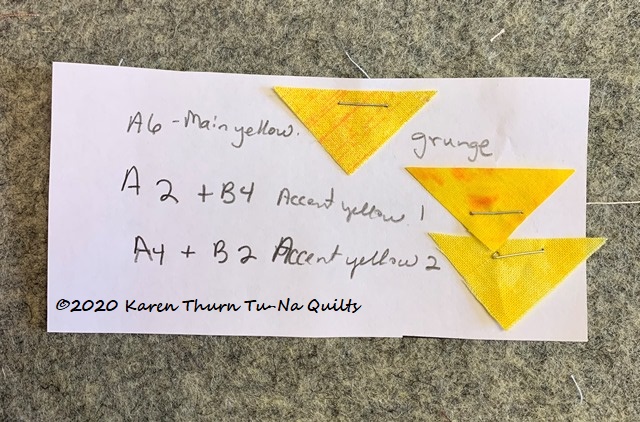 A6 - Main yellow.
grunge
A 2 + B4 Accent yellow 1
A4 + B 2 Accent yellow 2
©2020 Karen Thurn Tu-Na Quilts